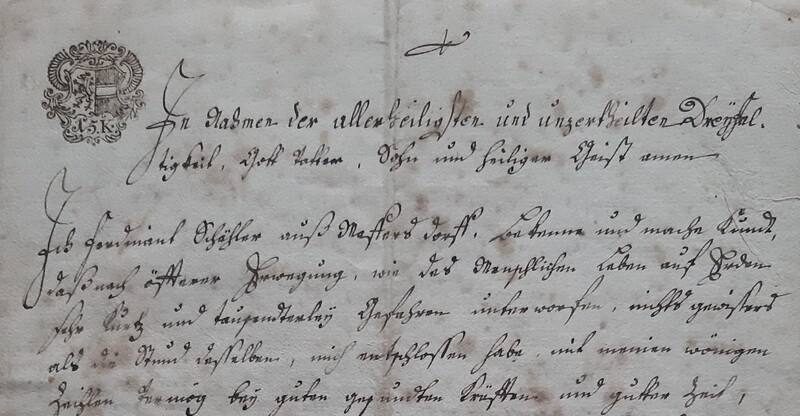 15 K
In Nahmen der allerheiligsten und unzertheilten Dreyfal-
tigkeit, Gott Vatter, Sohn und heiliger Geist amen
Ich Ferdinant Schähler auß Maffersdorff, bekenne und mache Kundt,
daß nach öffterer Erwegung, wie das Menschlichen Leben auf Erden
sehr Kurtz und tausendterley Gefahren unterworfen, nichts gewissers
als die Stund desselben, mich entschlossen habe, mit meinen wenigen
Zeitlen Vermög bey guten gesundten Kräfften und gutter Zeit,